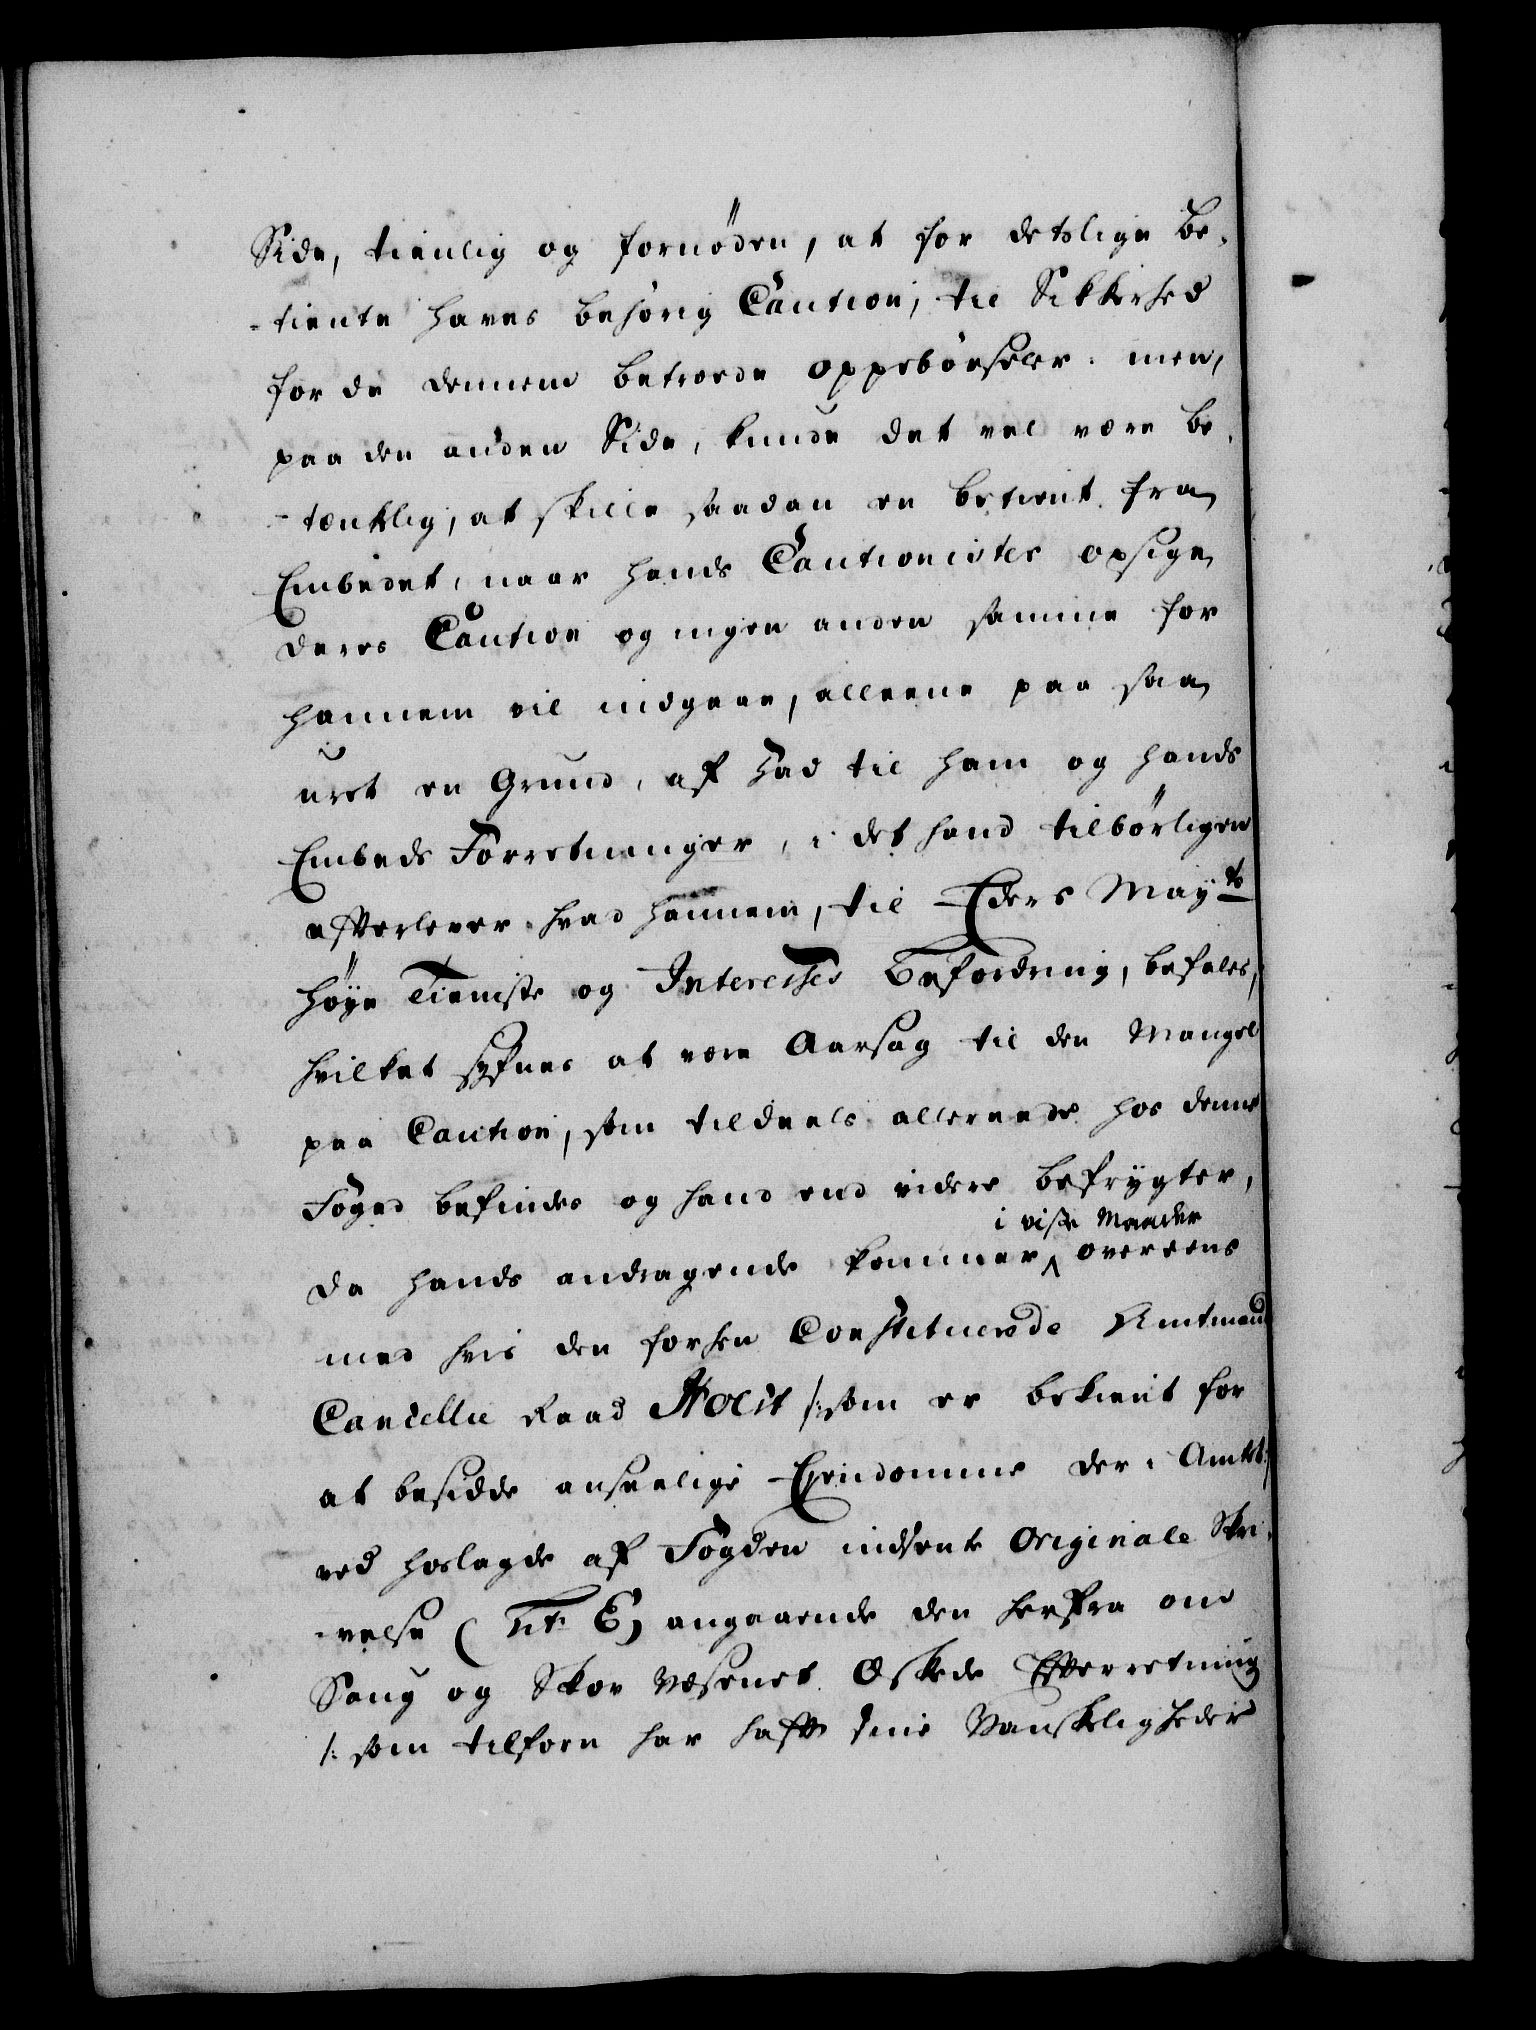 Side, tienlig og fornöden, at for detslige Be-
-tiente haves behörig Caution, til Sikkerhed
for de dennem betroede oppebörseler. men,
paa den anden Side, kunde det vel være be-
-tænklig, at skille saadan en betient fra
Embedet, naar hands Cautionister opsige
deres Caution og ingen anden samme for
hannem vil indgaae, alleene paa saa
uret en Grund, af had til ham og hands
Embeds Forretninger, i det hand tilbörligen
efterlever hvad hannem, til Eders Mayts
höye Tieniste og Interesses Befordring, befales,
hvilket synes at være Aarsag til den Mangel
paa Caution, som tildeels allereede hos denne
Foged befindes og hand end videre befrygter,
i visse Maader
da hands andragende kommer ^ overeens
med hvis den forhen Constituerede Amtmand
Cancellie Raad Holst /: som er bekient for
at besidde anseelige Eyendomme der i Amtet :/
ved hoslagde af Fogden indsente Originale Skri-
-velse (Lit: E) angaaende den herfra om
Saug og Skov Væsenet Æskede Efterretning
/: som tilforn har haft sine Vanskeligheder